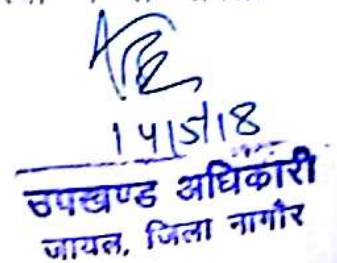 14/5/18
उपखण्ड अधिकारी
जायल, जिला नागौर